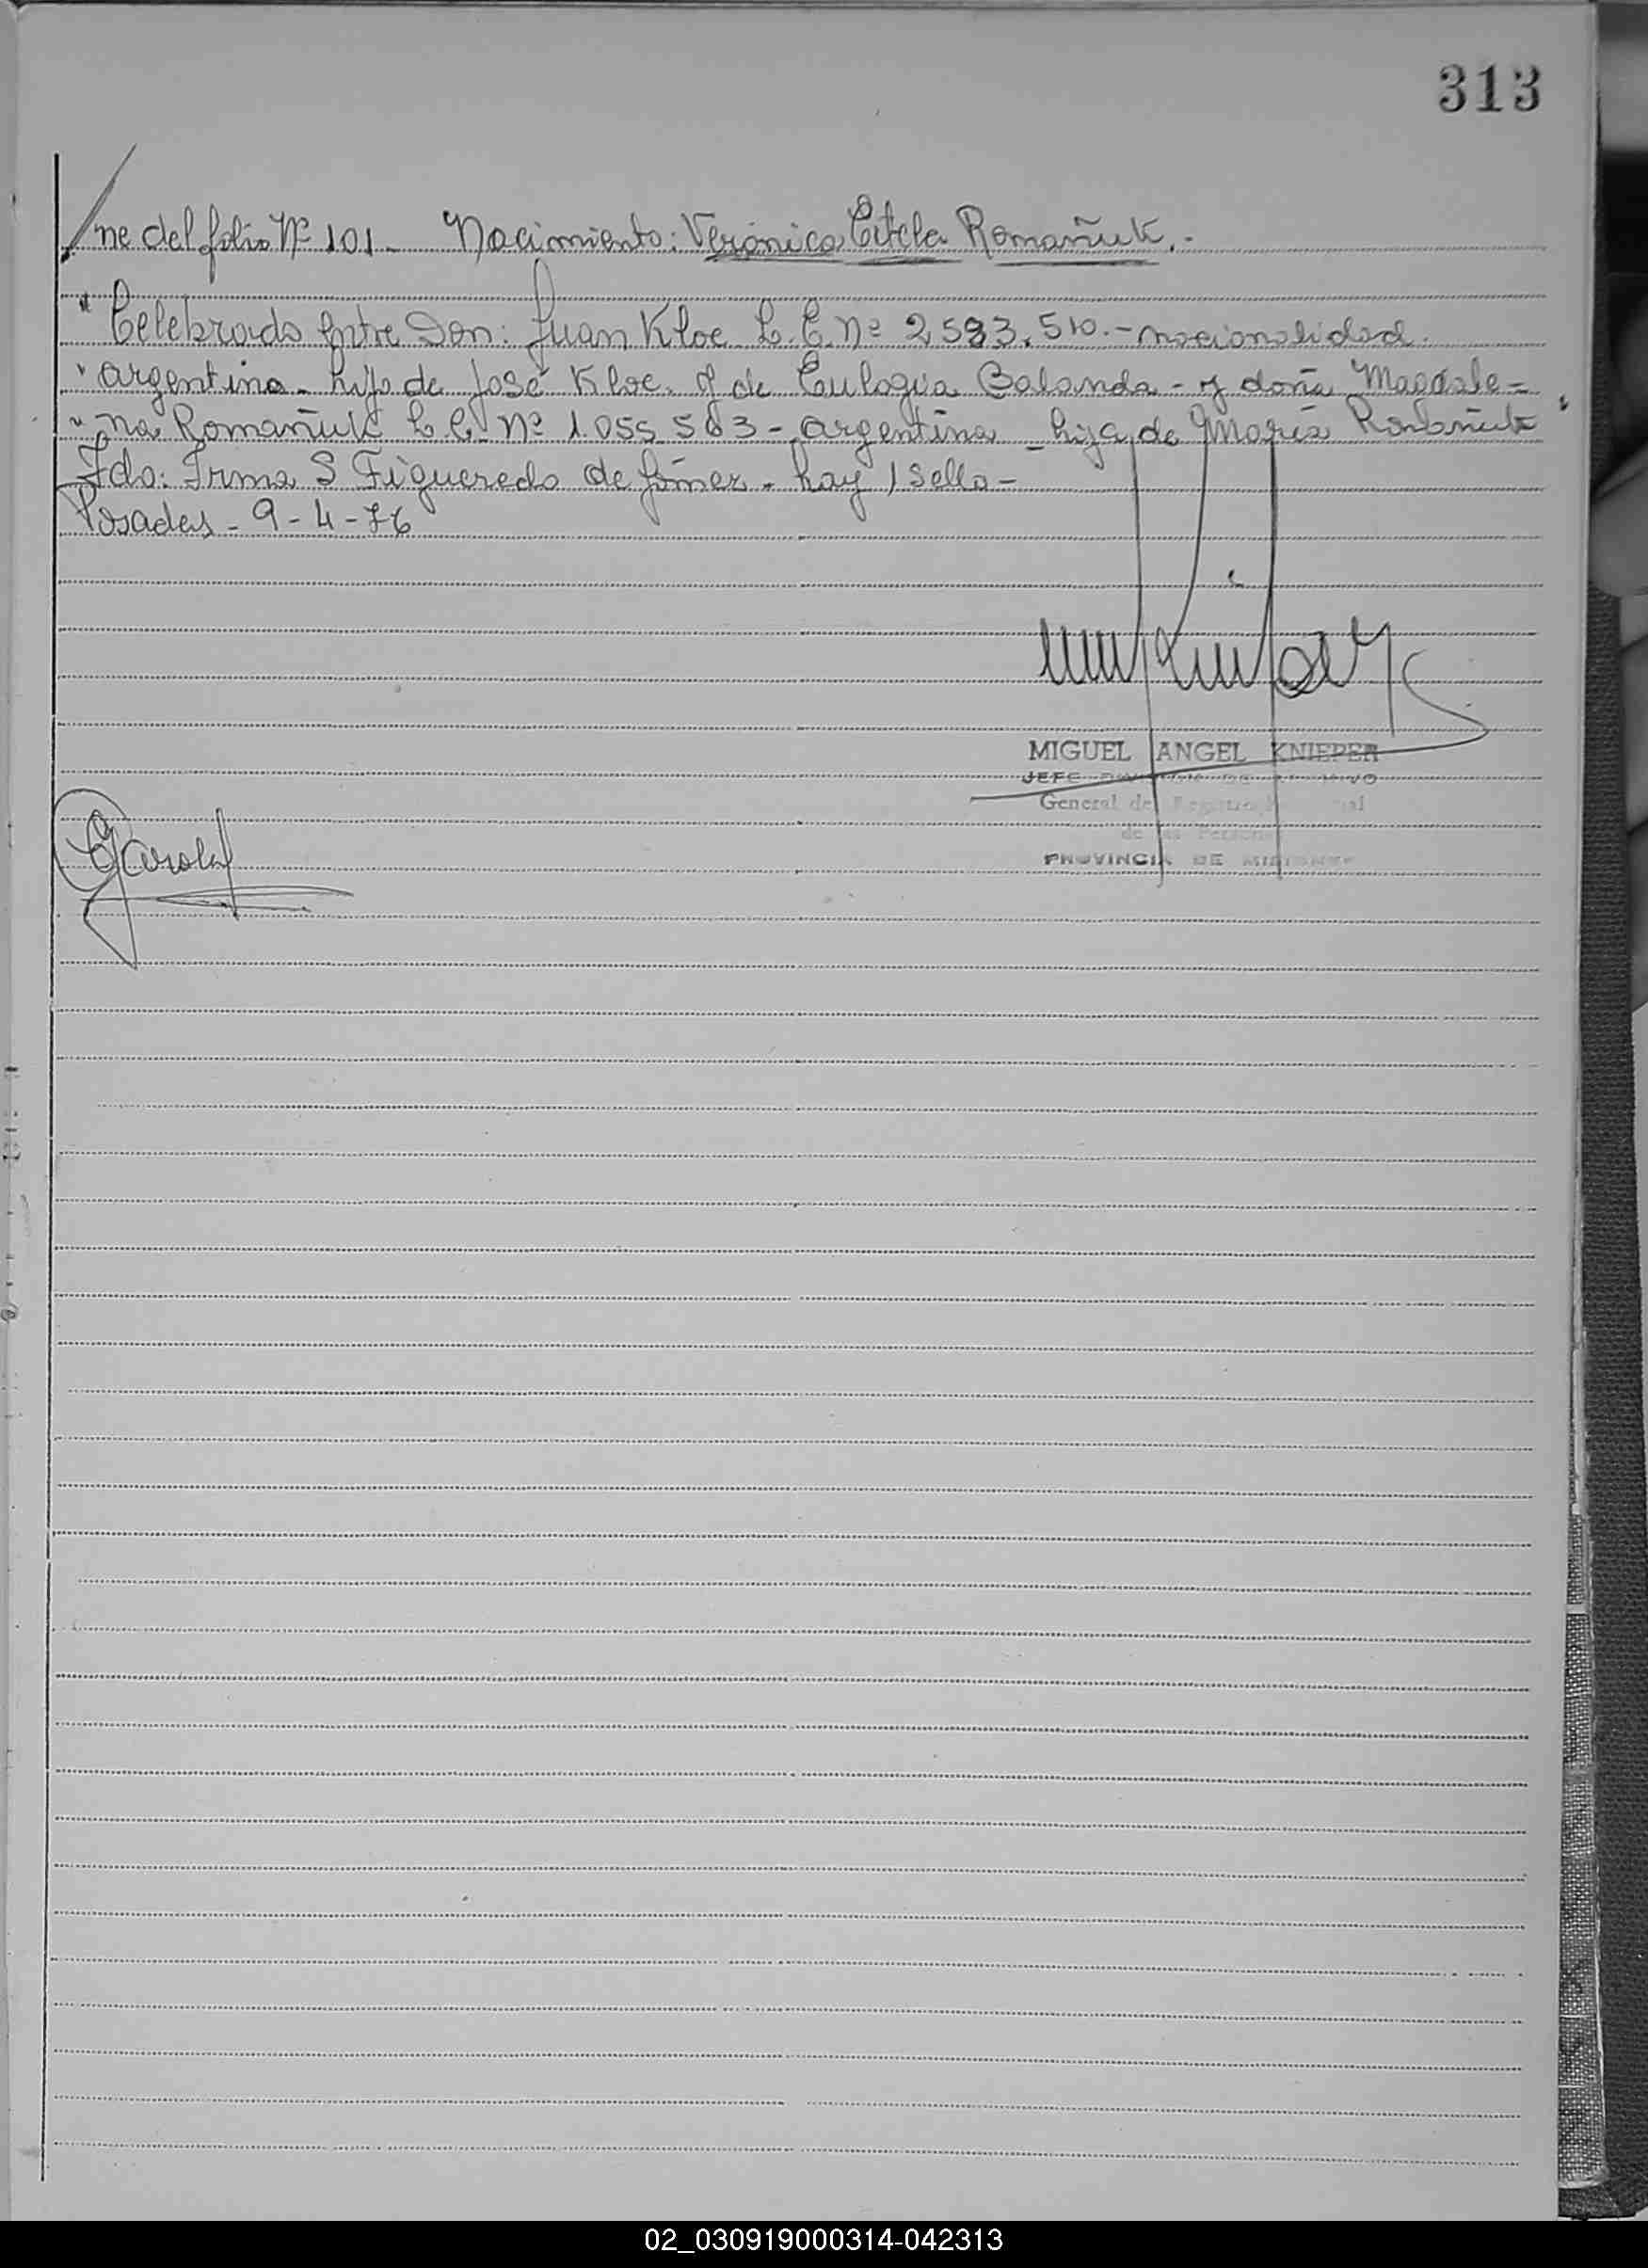 313
/ne del folio Nº 101 - Nacimiento: Verónica Citcla Romañuk.-
" Celebrado Entre Don: Juan Kloc L.E. nº 2583.510.- nacionalidad
" argentina - hijo de José Kloc y de Eulogia Balanda - y doña Magdale=
" na Romañuk L.C. Nº 1.055.563 - argentina - hija de María Romañuk "
Fdo: Irma S Figueredo de Gómez - hay 1 Sello -
Posadas - 9 - 4 - 76
MIGUEL ANGEL KNIEPER
JEFE DE
General del Registro
de las Personas
PROVINCIA DE MISIONES
02_030919000314-042313